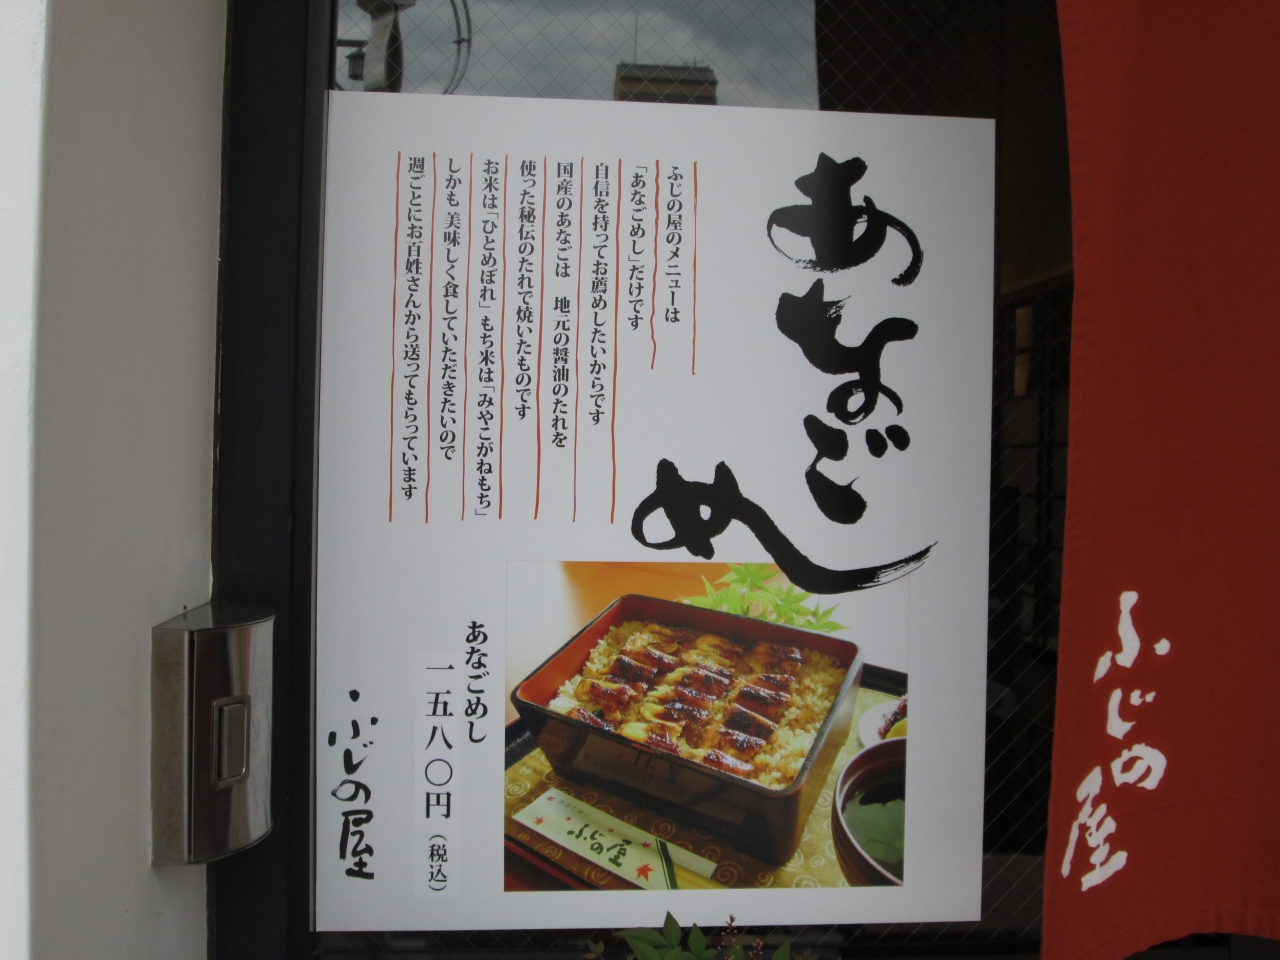 あなご
めし
ふじの屋のメニューは
「あなごめし」だけです
自信を持ってお薦めしたいからです
国産のあなごは 地元の醤油のたれを
使った秘伝のたれで焼いたものです
お米は「ひとめぼれ」もち米は「みやこがねもち」
しかも 美味しく食していただきたいので
週ごとにお百姓さんから送ってもらっています
あなごめし
一五八〇円(税込)
ふじの屋
ふじの屋
ふじの屋